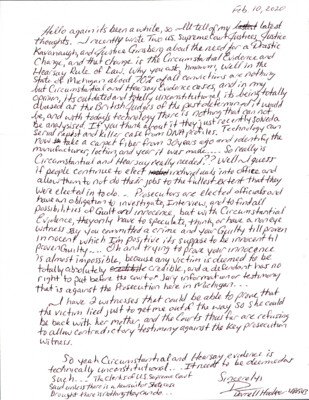 Feb 10, 2020
Hello again its been a while, so I'll tell of my latest
thoughts. I recently wrote Two U.S. Supreme Court Justices, Justice
Kavanaugh, and Justice Ginsberg about the need for a Drastic
Change, and that change is the Circumstantial Evidence and
Hearsay Rule of Law. Why you ask, however, well in the
State of Michigan about 70% of all convictions are nothing
but Circumstantial and Hearsay Evidence cases, and in my
opinion, its outdated and totally unconstitutional its being totally
abused as the British Judges of the past determined, it would
be, and with todays technology There is nothing that can not
be analysised. If you think about it they just recently solved a
serial rapist and killer case from DNA profiles. Technology can
now take a carpet fiber from 30 years ago and identify the
manufacturer, factory and year it was made..... So really is
Circumstantial and Hearsay really needed?? Well I guess
if people continue to elect individuals into office and
allow them to not do their jobs to the fullest extent that they
were elected in to do.... Prosecutors are elected officials and
have an obligation to investigate, Interview, and to find all
possibilities of Guilt and innocence, but with Circumstantial
Evidence, they only have to speculate, think, or have a
witness say you committed a crime and your Guilty till proven
innocent which I'm positive its suppose to be innocent til
proven Guilty.... Oh and trying to prove your innocence
is almost impossible, because any victim is deemed to be
totally absolute credible, and a defendant has no
right to put before the court any information or testimony
that is against the Prosecution here in Michigan....
I have 2 witnesses that could be able to prove that
the victim lied just to get me out of the way so she could
be back with her mother, and the Courts thus far are refusing
to allow contradictory testimony against the key prosecution
witness.
So yeah Circumstantial and Hearsay evidence is
technically unconstitutional... It need to be deemed as
Such.... The Clerk of U.S Supreme Court
Said unless there is a
Brought there is nothing they can do...
Sincerely,